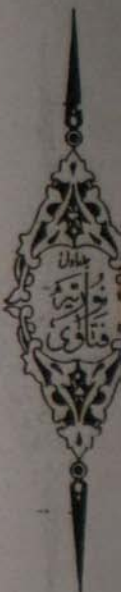 جلد اول
فتاویٰ
نوریہ